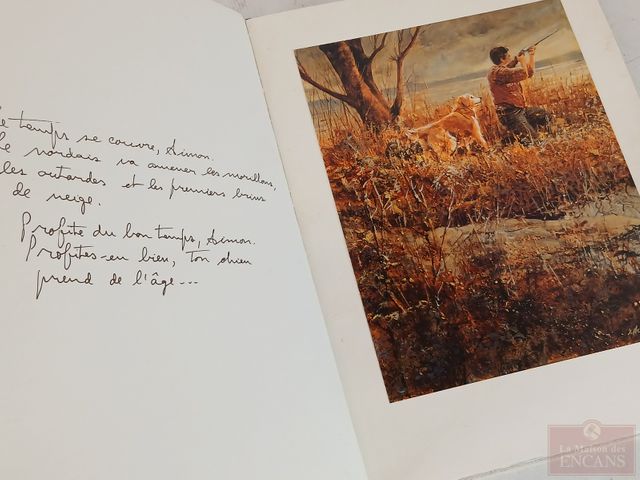 le temps se couvre, Simon.
le nordais va amener les morillons,
les outardes et les premiers brins
de neige.
Profite du bon temps, Simon.
Profites-en bien, ton chien
prend de l'âge...
La Maison des
ENCANS